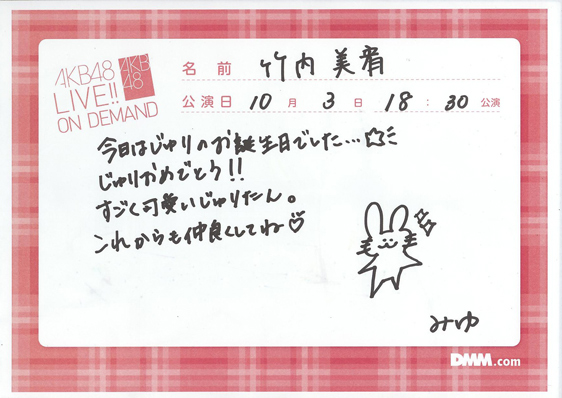 AKB48
LIVE!!
ON DEMAND
AKB
48
名前 竹内美宥
公演日 10月3日 18:30公演
今日はじゅりのお誕生日でした…☆彡
じゅりおめでとう!!
すごく可愛いじゅりたん。
これからも仲良くしてね♡
みゆ
DMM.com